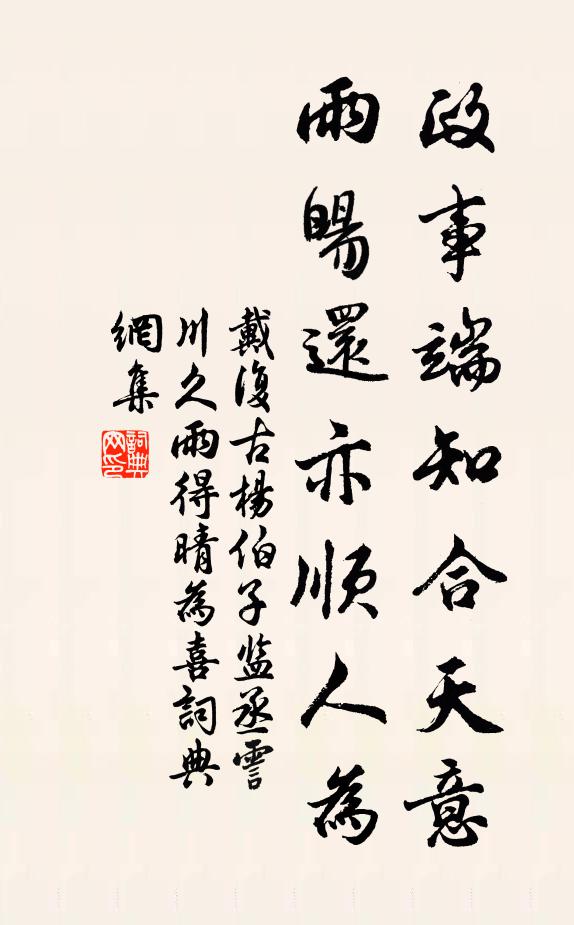 政事端知合天意
雨暘還亦順人為
戴復古楊伯子監丞霅
川久雨得晴為喜詞典
網集
詞典
网印